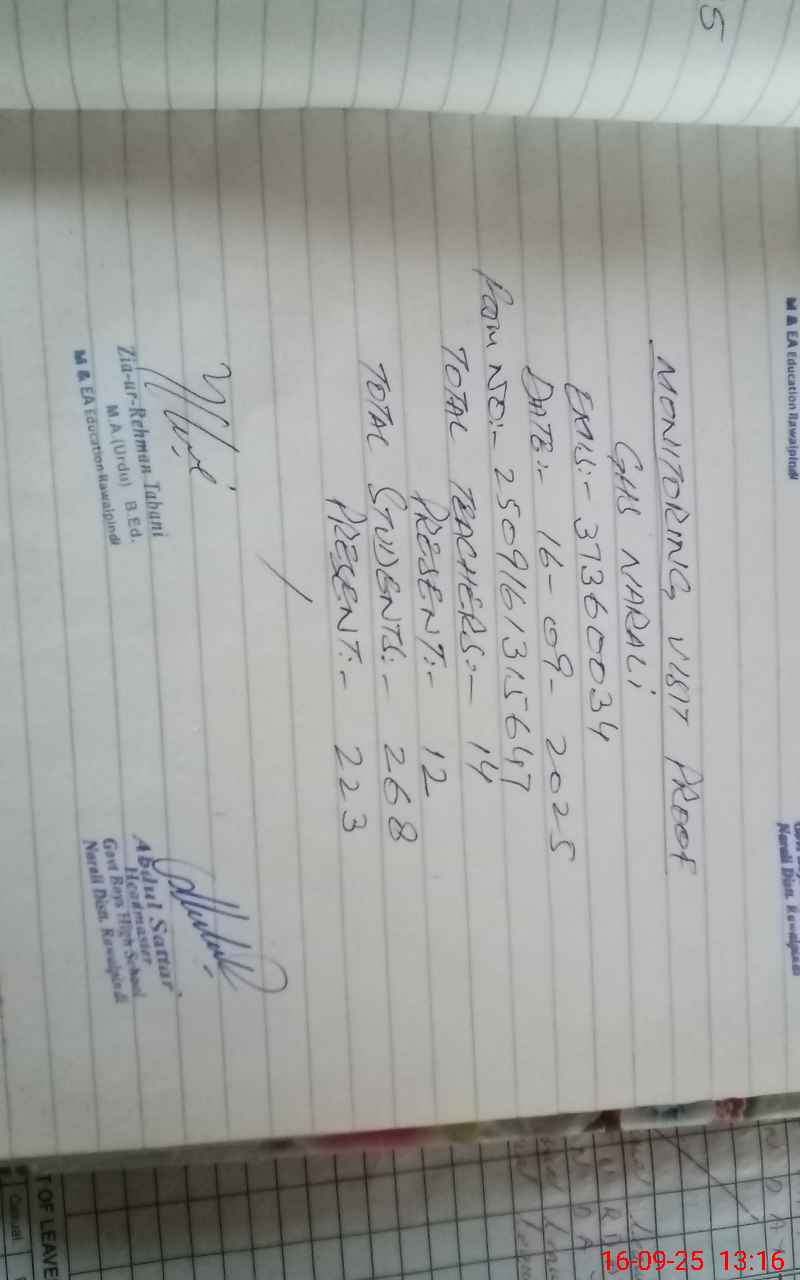 5
M & EA Education Rawalpindi
Narali Distt. Rawalpindi
MONITORING VISIT PROOF
GHS NARALI
EMIS:- 37360034
DATE:- 16-09-2025
ROOM NO:- 2509161315647
TOTAL TEACHERS:- 14
PRESENT:- 12
TOTAL STUDENTS:- 268
PRESENT:- 223
Zia-ur-Rehman Tabani
M.A (Urdu) B.Ed.
M & EA Education Rawalpindi
Abdul Sattar
Headmaster
Govt Boys High School
Narali Distt. Rawalpindi
T OF LEAVE
Casual
16-09-25 13:16